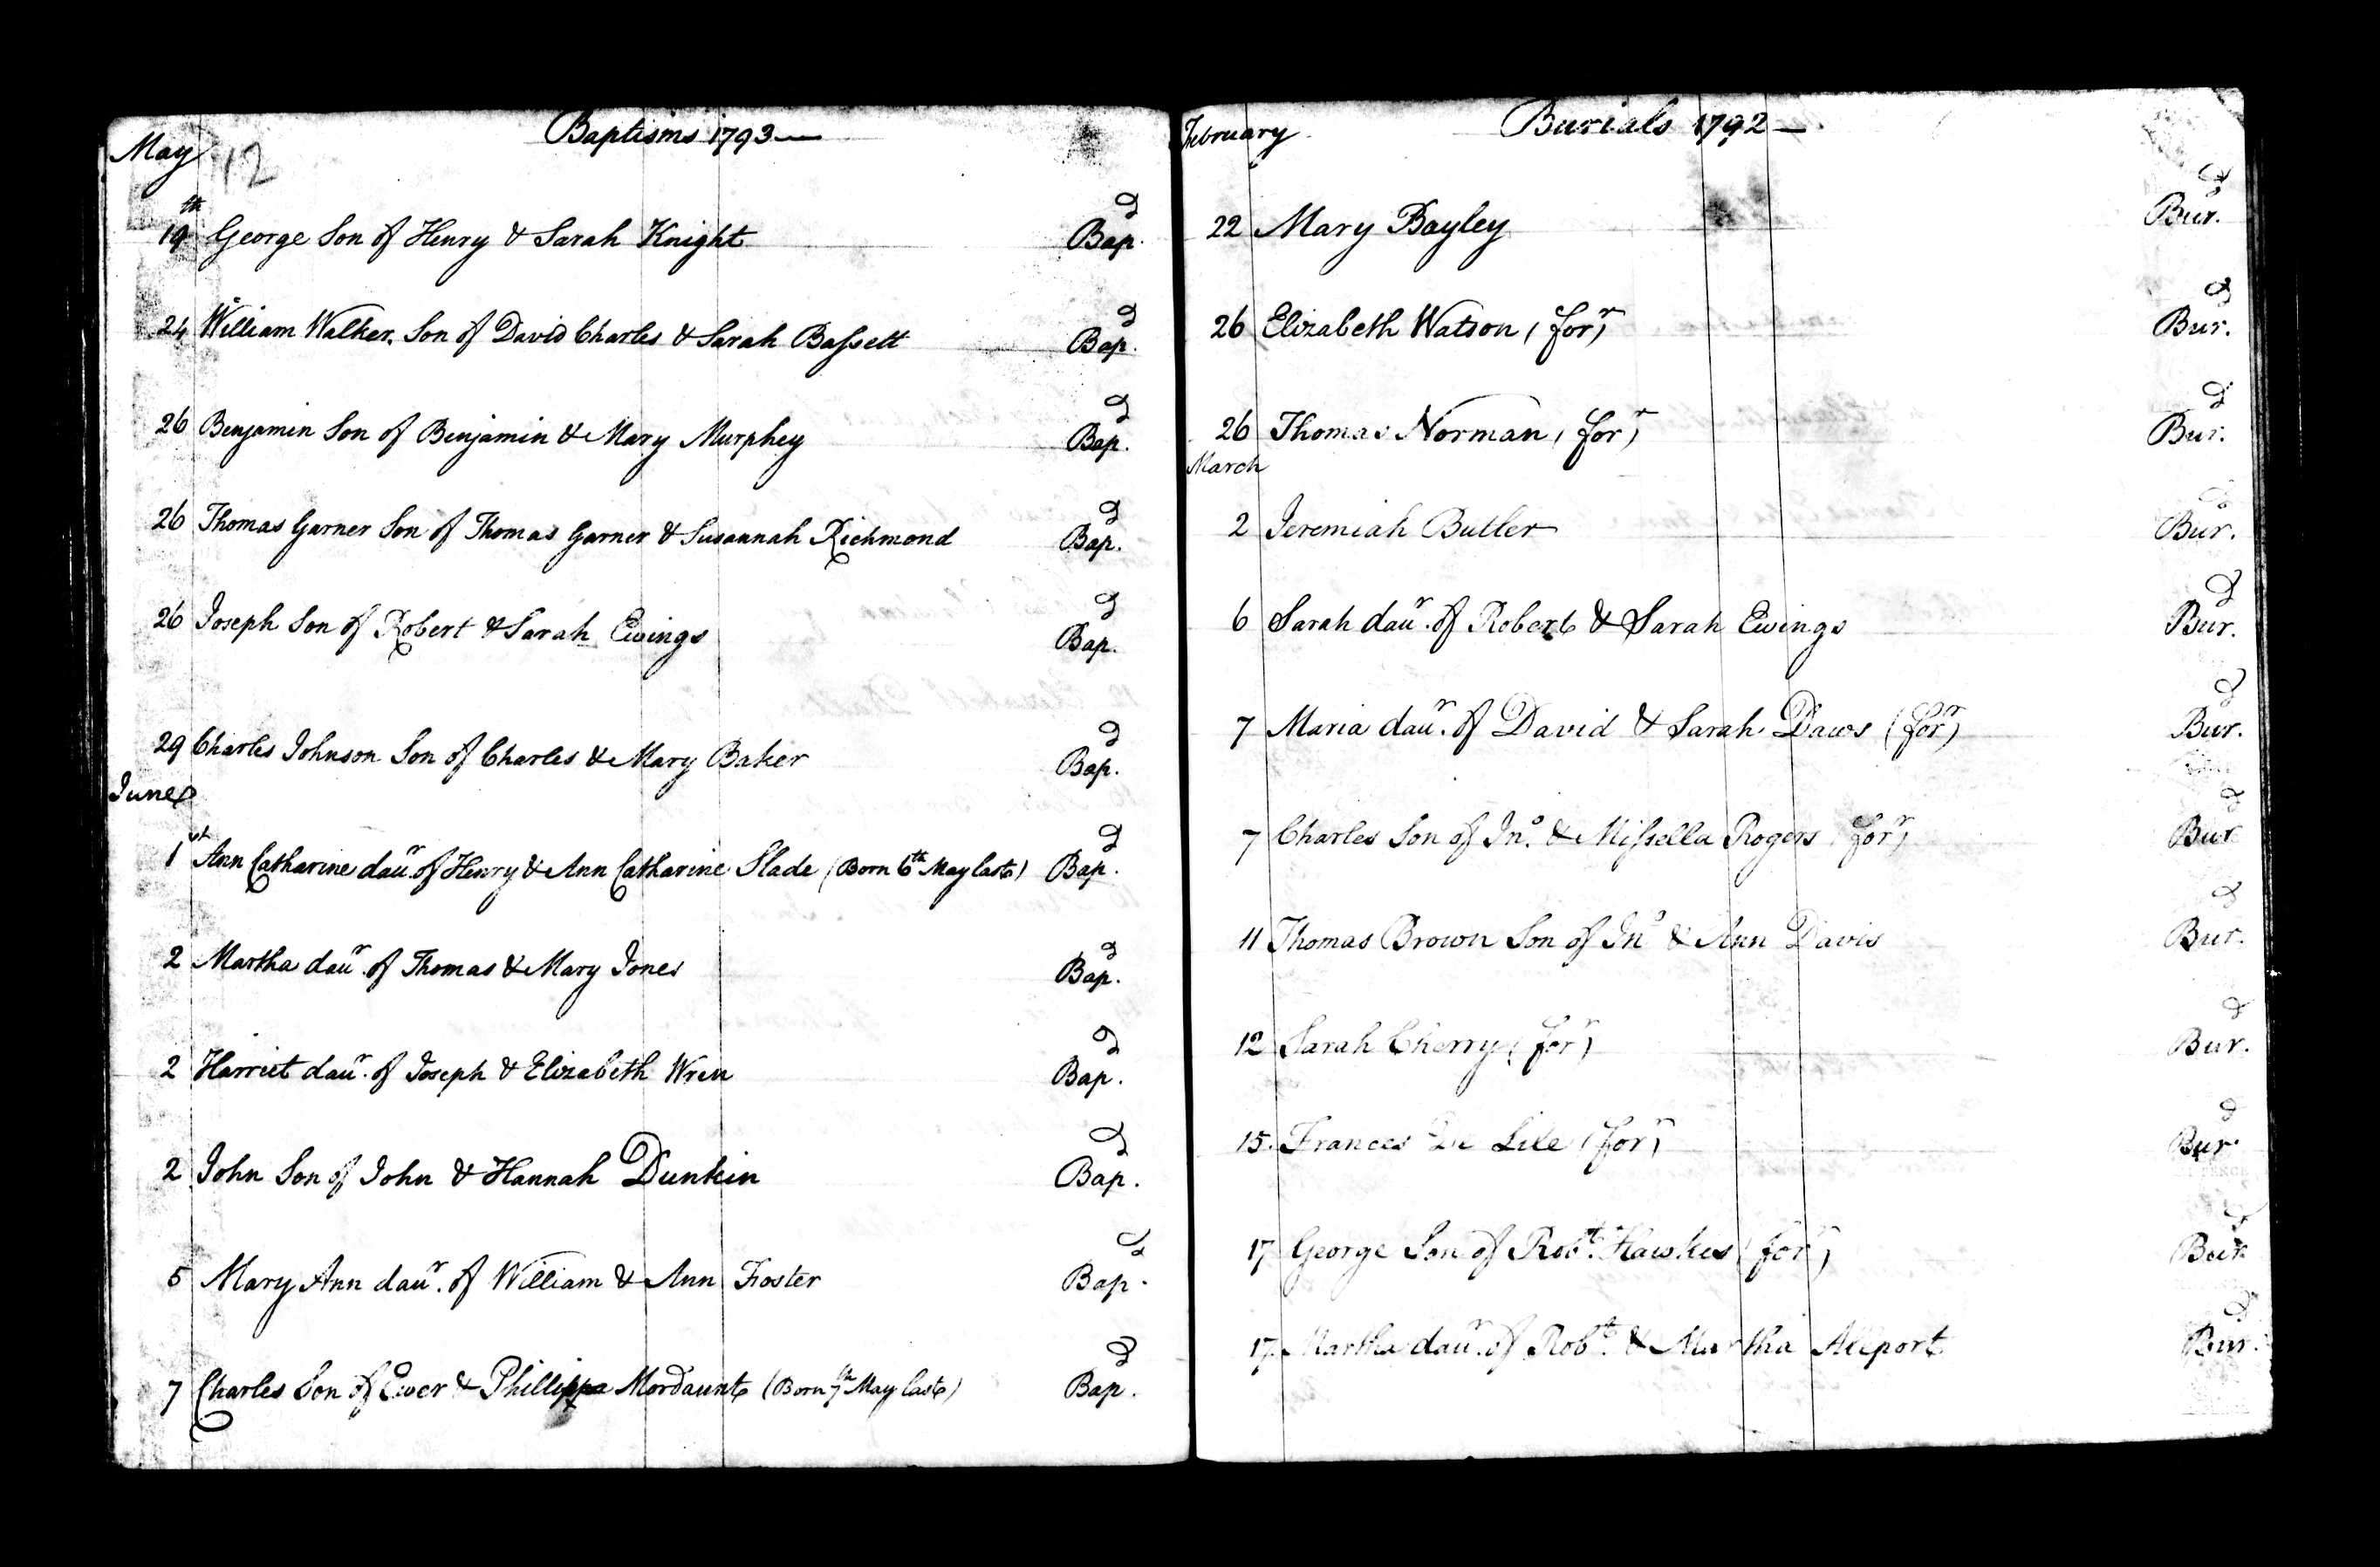 Baptisms 1793
May
12
19th George Son of Henry & Sarah Knight Bapd.
24 William Walker Son of David Charles & Sarah Bassett Bapd.
26 Benjamin Son of Benjamin & Mary Murphey Bapd.
26 Thomas Garner Son of Thomas Garner & Susannah Richmond Bapd.
26 Joseph Son of Robert & Sarah Ewings Bapd.
29 Charles Johnson Son of Charles & Mary Baker Bapd.
June
1st Ann Catharine daur. of Henry & Ann Catharine Slade (Born 6th May last) Bapd.
2 Martha daur. of Thomas & Mary Jones Bapd.
2 Harriet daur. of Joseph & Elizabeth Wren Bapd.
2 John Son of John & Hannah Dunkin Bapd.
5 Mary Ann daur. of William & Ann Foster Bapd.
7 Charles Son of Ewer & Phillippa Mordaunt (Born 7th May last) Bapd.
Burials 1792
February
22 Mary Bayley Burd.
26 Elizabeth Watson (forr) Burd.
26 Thomas Norman (forr) Burd.
March
2 Jeremiah Butler Burd.
6 Sarah daur. of Robert & Sarah Ewings Burd.
7 Maria daur. of David & Sarah Daws (forr) Burd.
7 Charles Son of Jno. & Missella Rogers (forr) Burd.
11 Thomas Brown Son of Jno & Ann Davis Burd.
12 Sarah Cherry (forr) Burd.
15 Frances De Lile (forr) Burd.
17 George Son of Robt. Hawkes (forr) Burd.
17 Martha daur. of Robt. & Martha Allport Burd.